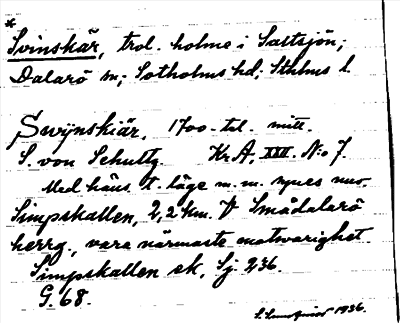 *
Svinskär, trol. holme i Saltsjön;
Dalarö sn; Sotholms hd; Sthlms l.
Swijnskiär. 1700-tal. mitt.
S. von Schultz. Kr.A. XXII. N:o 7.
Med häns. t. läge m. m. synes nuv.
Simpskallen, 2,2 km. V Smådalarö
herrg., vara närmaste motsvarighet.
Simpskallen ek, Sj. 236.
G. 68.
1936.